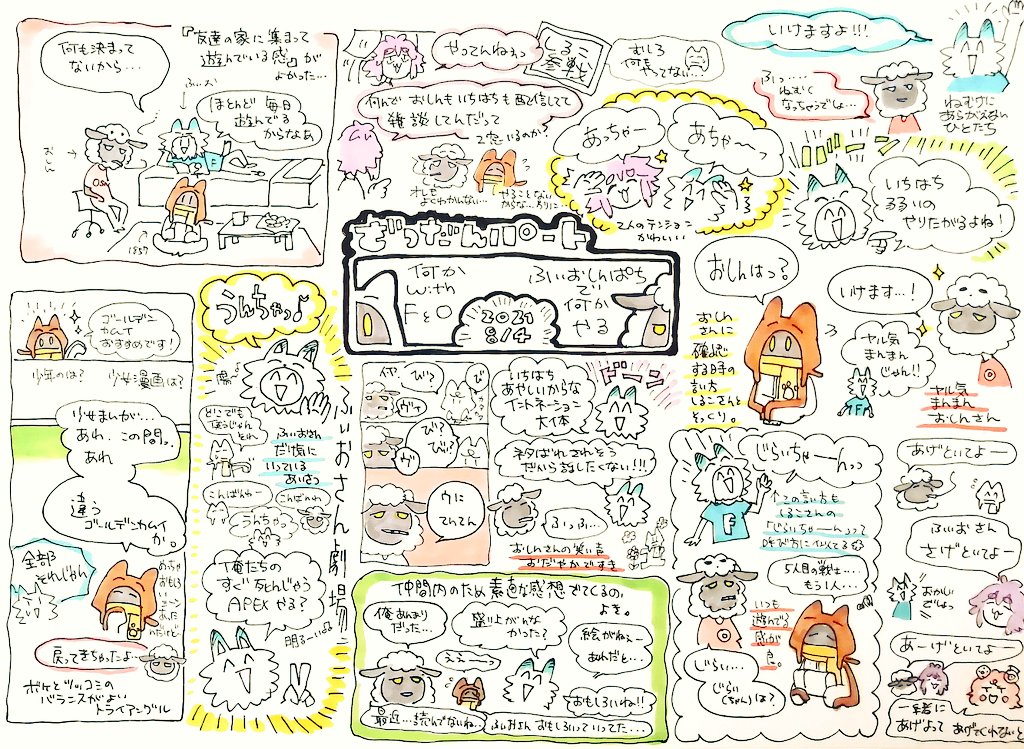 何も決まって
ないから…
『友達の家に集まって
遊んでいる感』が
よかった…
ほとんど毎日
遊んでる
からなぁ
おしん
F
1887
やってんねぇっ
しるこ
参戦
むしろ
何も
やってない…
何でおしんもいちはちも配信してて
雑談してんだって
2窓いるのか?
オレも
よくわかんない…
やることない
からな…
あっちゃー
あちゃ〜〜っ
2人のテンション
かわいい
いけますよ!!!
ふっ…
ねむく
なっちゃうでしょ…
ねむけに
あらがえない
ひとたち
いちはち
るるいの
やりたがるよね!
ざつだんパート
何か
with
F&O
2021
8/4
ふぃおしんぱち
で
何か
やる
おしんはっ?
おしん
さんに
確認
する時の
言い方
しるこさんと
そっくり。
いけます…!
ヤル気
まんまん
じゃん!!
ヤル気
まんまん
おしんさん
ゴールデン
カムイ
おすすめです!
少年のは?
少女漫画は?
少女まんが…
あれ、この間…
あれ
違う
ゴールデンカムイ
か。
全部
それじゃん
戻ってきちゃったよ…
ボケとツッコミの
バランスがよい
トライアングル
うんちゃっ♪
どこでも
ふぃおさん
だけ気に
いっている
あいさつ
こんばんわー
こんばんわ
うんちゃっ
俺たちの
すぐ死んじゃう
APEXやる?
明るーい
ふぃおさん劇場
び?
ヴィ
び?
びぃ?
ヴ
ウに
てんてん
いちはち
あやしいからな
イントネーション
大イ本
ネタばれされそう
だから話したくない!!!
ふっふ…
おしんさんの笑い声
おだやかですき
仲間内のため素直な感想でてくるの、
よき。
俺あんまり
だった…
盛り上がんな
かった?
ええ〜
絵がねぇー
あれだと…
おもしろいね!!
最近…読んでないね…
ふみさんおもしろいっていってた…
じらいちゃーんっっ
↑この言い方も
しるこさんの
「じらいちゃーんっ」って
呼び方に似てる
5人目の戦士…
もう1人…
いつも
遊んでる
感が
良き。
じらい…
じらい
(ちゃん)は?
あげといてよー
ふぃおさん
さげといてよー
おかしい
でしょっ
あーげといてよー
一緒に
あげよって
あげてくれないと